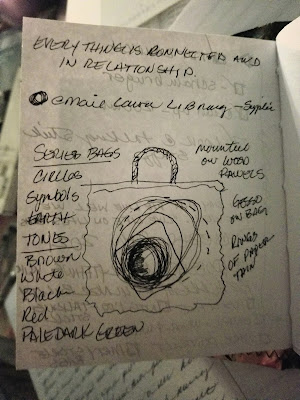 EVERYTHING IS CONNECTED AND
IN RELATIONSHIP.
email Laura Library -
SERIES BAGS
CIRCLES
Symbols
EARTH
TONES
Brown
White
Black
Red
PALE DARK GREEN
mounted
ON WOOD
PANELS
GESSO
ON BAG
RINGS
OF PAPER
THIN